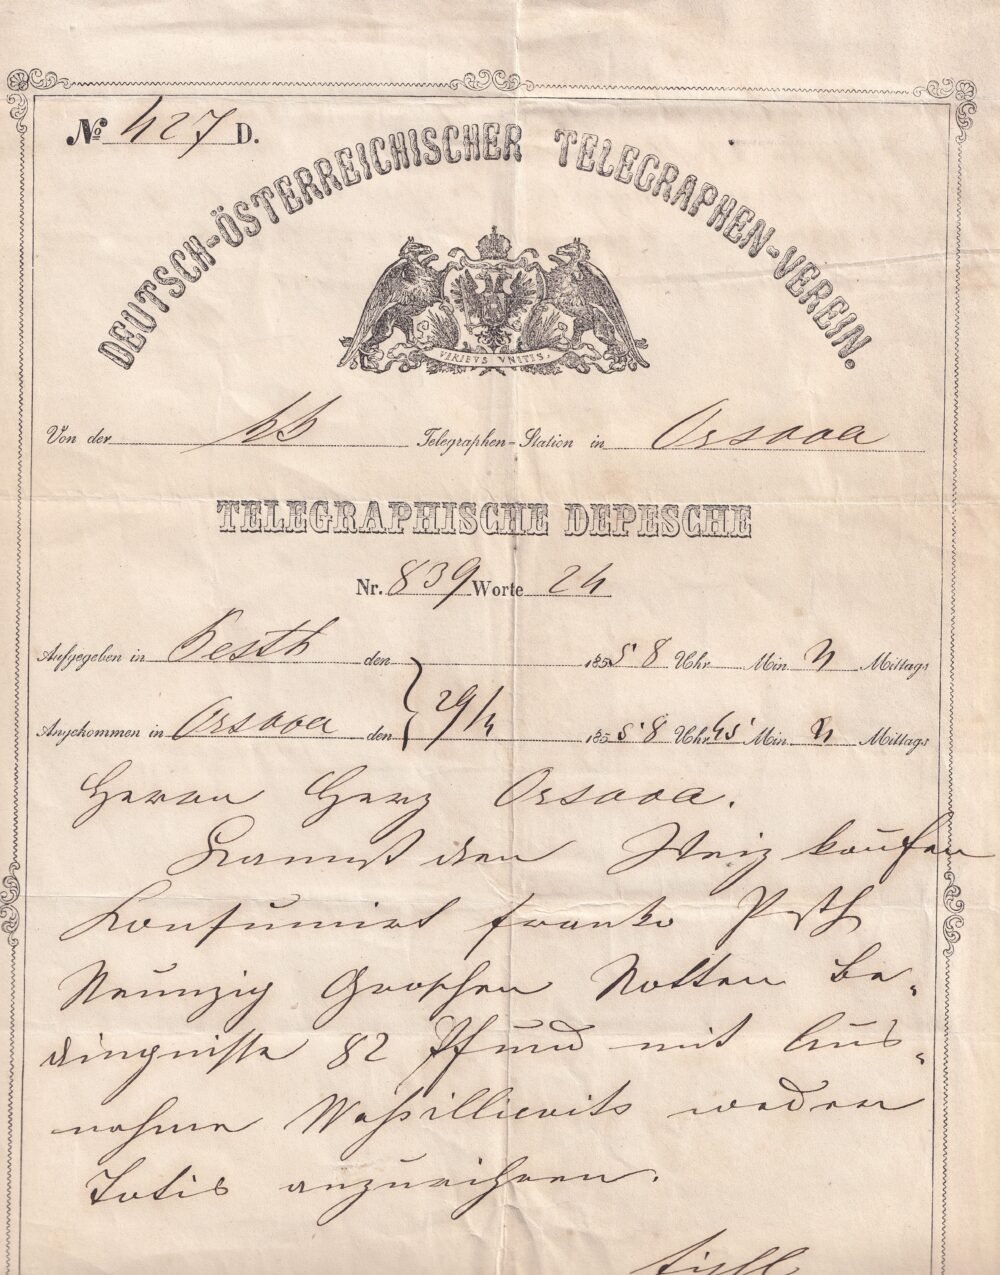 No 427 D.
DEUTSCH-ÖSTERREICHISCHER TELEGRAPHEN-VEREIN.
VIRIBVS VNITIS.
Von der kk Telegraphen-Station in Orsova
TELEGRAPHISCHE DEPESCHE
Nr. 839 Worte 24
Aufgegeben in Pesth den 1855 8 Uhr Min. N Mittags
Angekommen in Orsova den 29/4 1855 8 Uhr 45 Min. N Mittags
Herrn Herz Orsova.
Kannst den Weiz kaufen
Konsumirt franko Psth
Neunzig Groschen Notten be-
dingnisse 82 Pfund mit Aus-
nahme